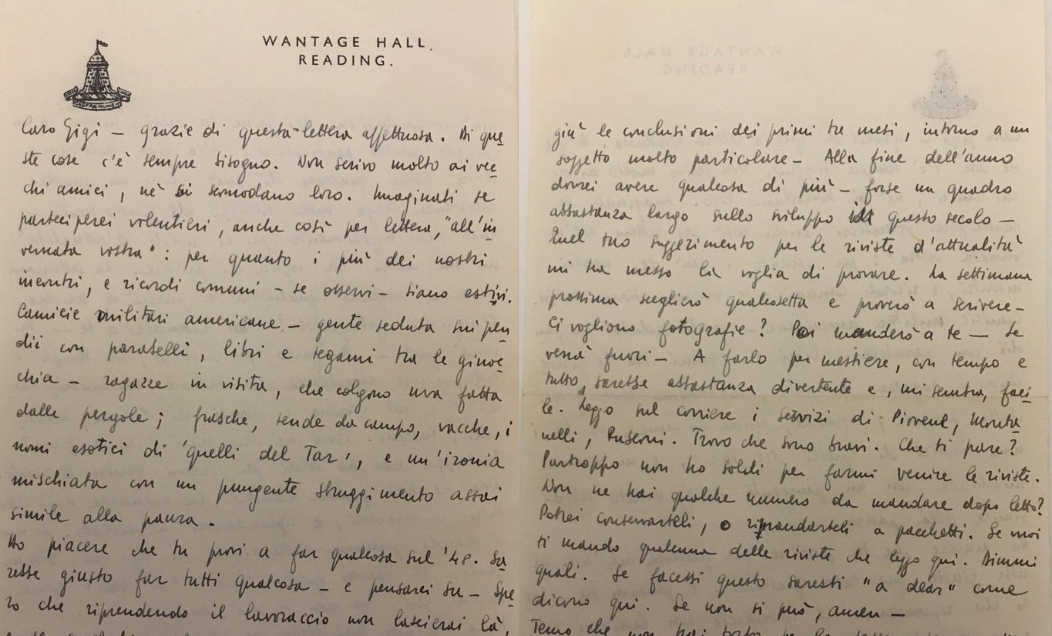 WANTAGE HALL,
READING.
Caro Gigi – grazie di questa lettera affettuosa. Di que
ste cose c'è sempre bisogno. Non scrivo molto ai vec
chi amici, nè si scomodano loro. Imaginati se
parteciperei volentieri, anche così per lettera, "all'in
vernata vostra": per quanto i più dei nostri
incontri, e ricordi comuni – se osservi – siano estivi.
Camicie militari americane – gente seduta sui pen
dii con parabelli, libri e tegami tra le ginoc
chia – ragazze in visita, che colgono uva fatta
dalle pergole; frasche, tende da campo, vacche, i
nomi esotici di 'quelli del Tar', e un'ironia
mischiata con un pungente struggimento assai
simile alla paura.
Ho piacere che tu provi a far qualcosa sul '48. Sa
rebbe giusto far tutti qualcosa – e pensarci su – Spe
ro che riprendendo il lavoraccio non lascerai là,
già le conclusioni dei primi tre mesi, intorno a un
soggetto molto particolare – Alla fine dell'anno
dovrei avere qualcosa di più – forse un quadro
abbastanza largo sullo sviluppo di questo secolo –
Quel tuo suggerimento per le riviste d'attualità
mi ha messo la voglia di provare. La settimana
prossima sceglierò qualcosetta e proverò a scrivere –
Ci vogliono fotografie? Poi manderò a te – se
verrà fuori – A farlo per mestiere, con tempo e
tutto, sarebbe abbastanza divertente e, mi sembra, faci
le. Leggo sul corriere i servizi di Piovene, Monta
nelli, Buserni. Trovo che sono bravi. Che ti pare?
Purtroppo non ho soldi per farmi venire le riviste.
Non ne hai qualche numero da mandare dopo letto?
Potrei conservarteli, o rimandarteli a pacchetti. Se vuoi
ti mando qualcuna delle riviste che leggo qui. Dimmi
quali. Se facessi questo saresti "a dear" come
dicono qui. Se non si può, amen –
Temo che non